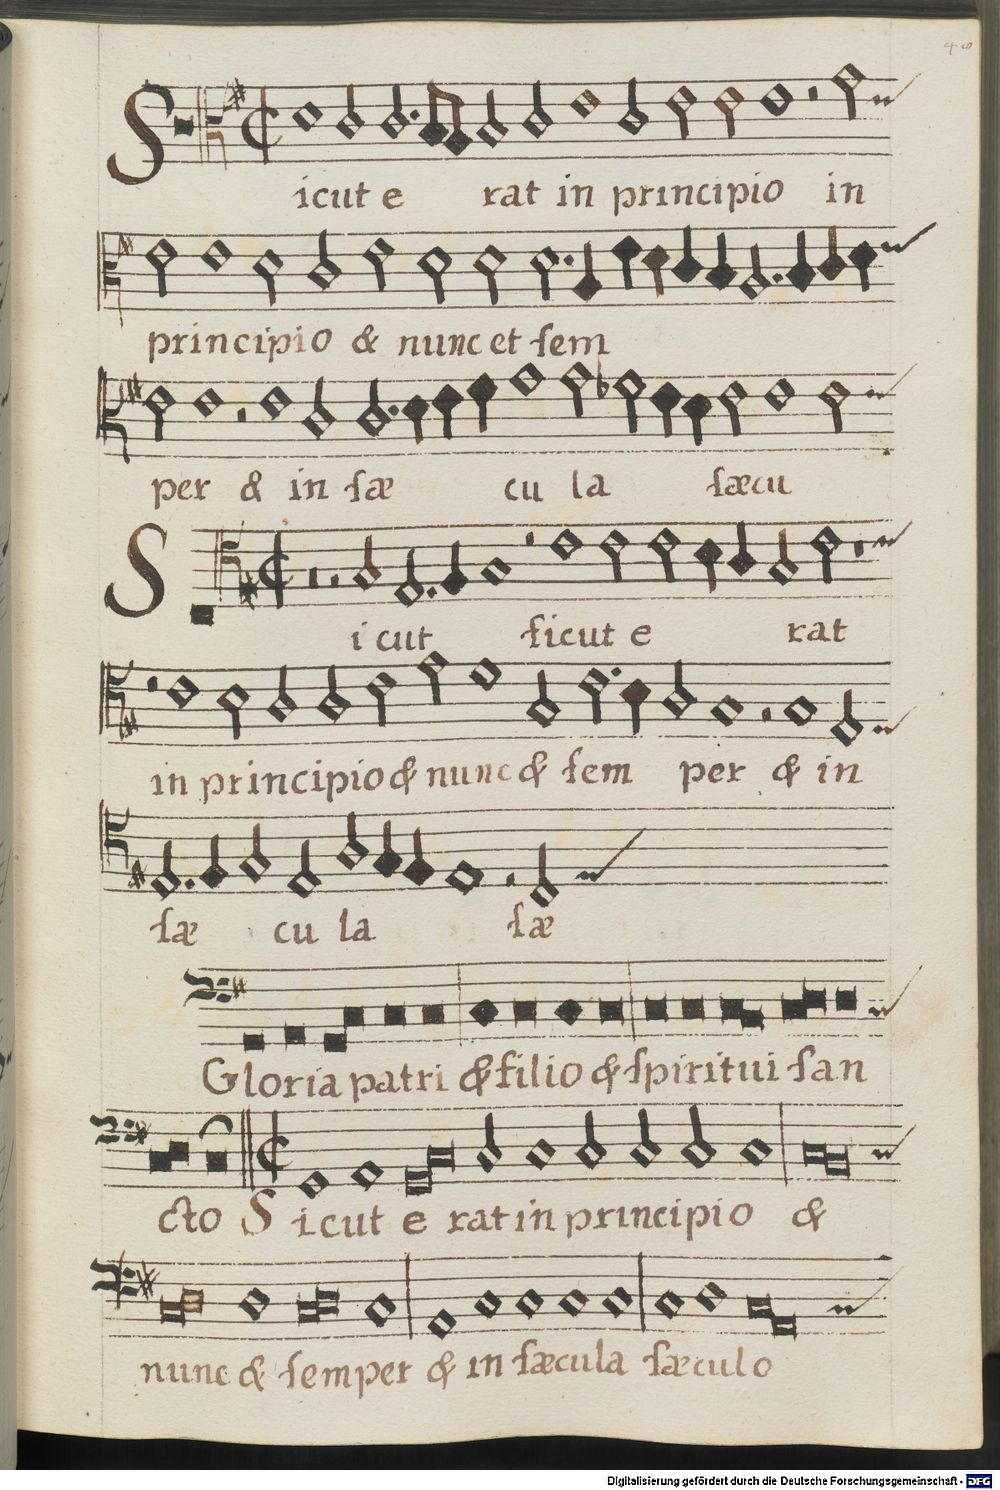 S
icut e rat in principio in
principio & nunc et ſem
per & in ſæ cu la ſæcu
S
i cut ſicut e rat
in principio & nunc & ſem per & in
ſæ cu la ſæ
Gloria patri & filio & ſpiritui ſan
cto S icut e rat in principio &
nunc & ſemper & in ſæcula ſæculo
Digitalisierung gefördert durch die Deutsche Forschungsgemeinschaft - DFG